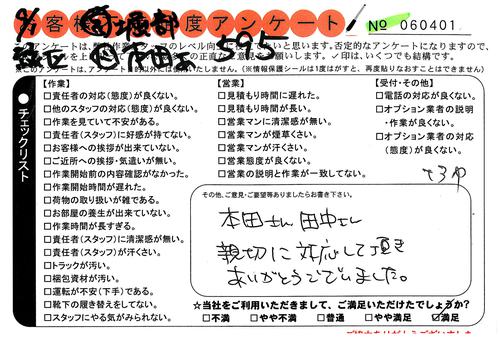 お客様満足度アンケート
№ 060401
このアンケートは、
595
【作業】
□責任者の対応(態度)が良くない。
□他のスタッフの対応(態度)が良くない。
□作業を見ていて不安がある。
□責任者(スタッフ)に好感が持てない。
□お客様への挨拶が出来ていない。
□ご近所への挨拶・気遣いが無い。
□作業開始前の内容確認がなかった。
□作業開始時間が遅れた。
□荷物の取り扱いが雑である。
□お部屋の養生が出来ていない。
□作業時間が長すぎる。
□責任者(スタッフ)に清潔感が無い。
□責任者(スタッフ)が汗くさい。
□トラックが汚い。
□梱包資材が汚い。
□運転が不安(下手)である。
□靴下の履き替えをしてない。
□スタッフにやる気がみられない。
【営業】
□見積もり時間に遅れた。
□見積もり時間が長い。
□営業マンに清潔感が無い。
□営業マンが煙草くさい。
□営業マンが汗くさい。
□営業態度が良くない。
□営業の説明と作業が一致してない。
【受付・その他】
□電話の対応が良くない。
□オプション業者の説明
・作業が良くない。
□オプション業者の対応
(態度)が良くない。
チェックリスト
その他、ご意見・ご要望等ありましたらお書き下さい。
本田さん 田中さん
親切に対応して頂き
ありがとうございました。
☆当社をご利用いただきまして、ご満足いただけたでしょうか?
□不満 □やや不満 □普通 □やや満足 ☑満足